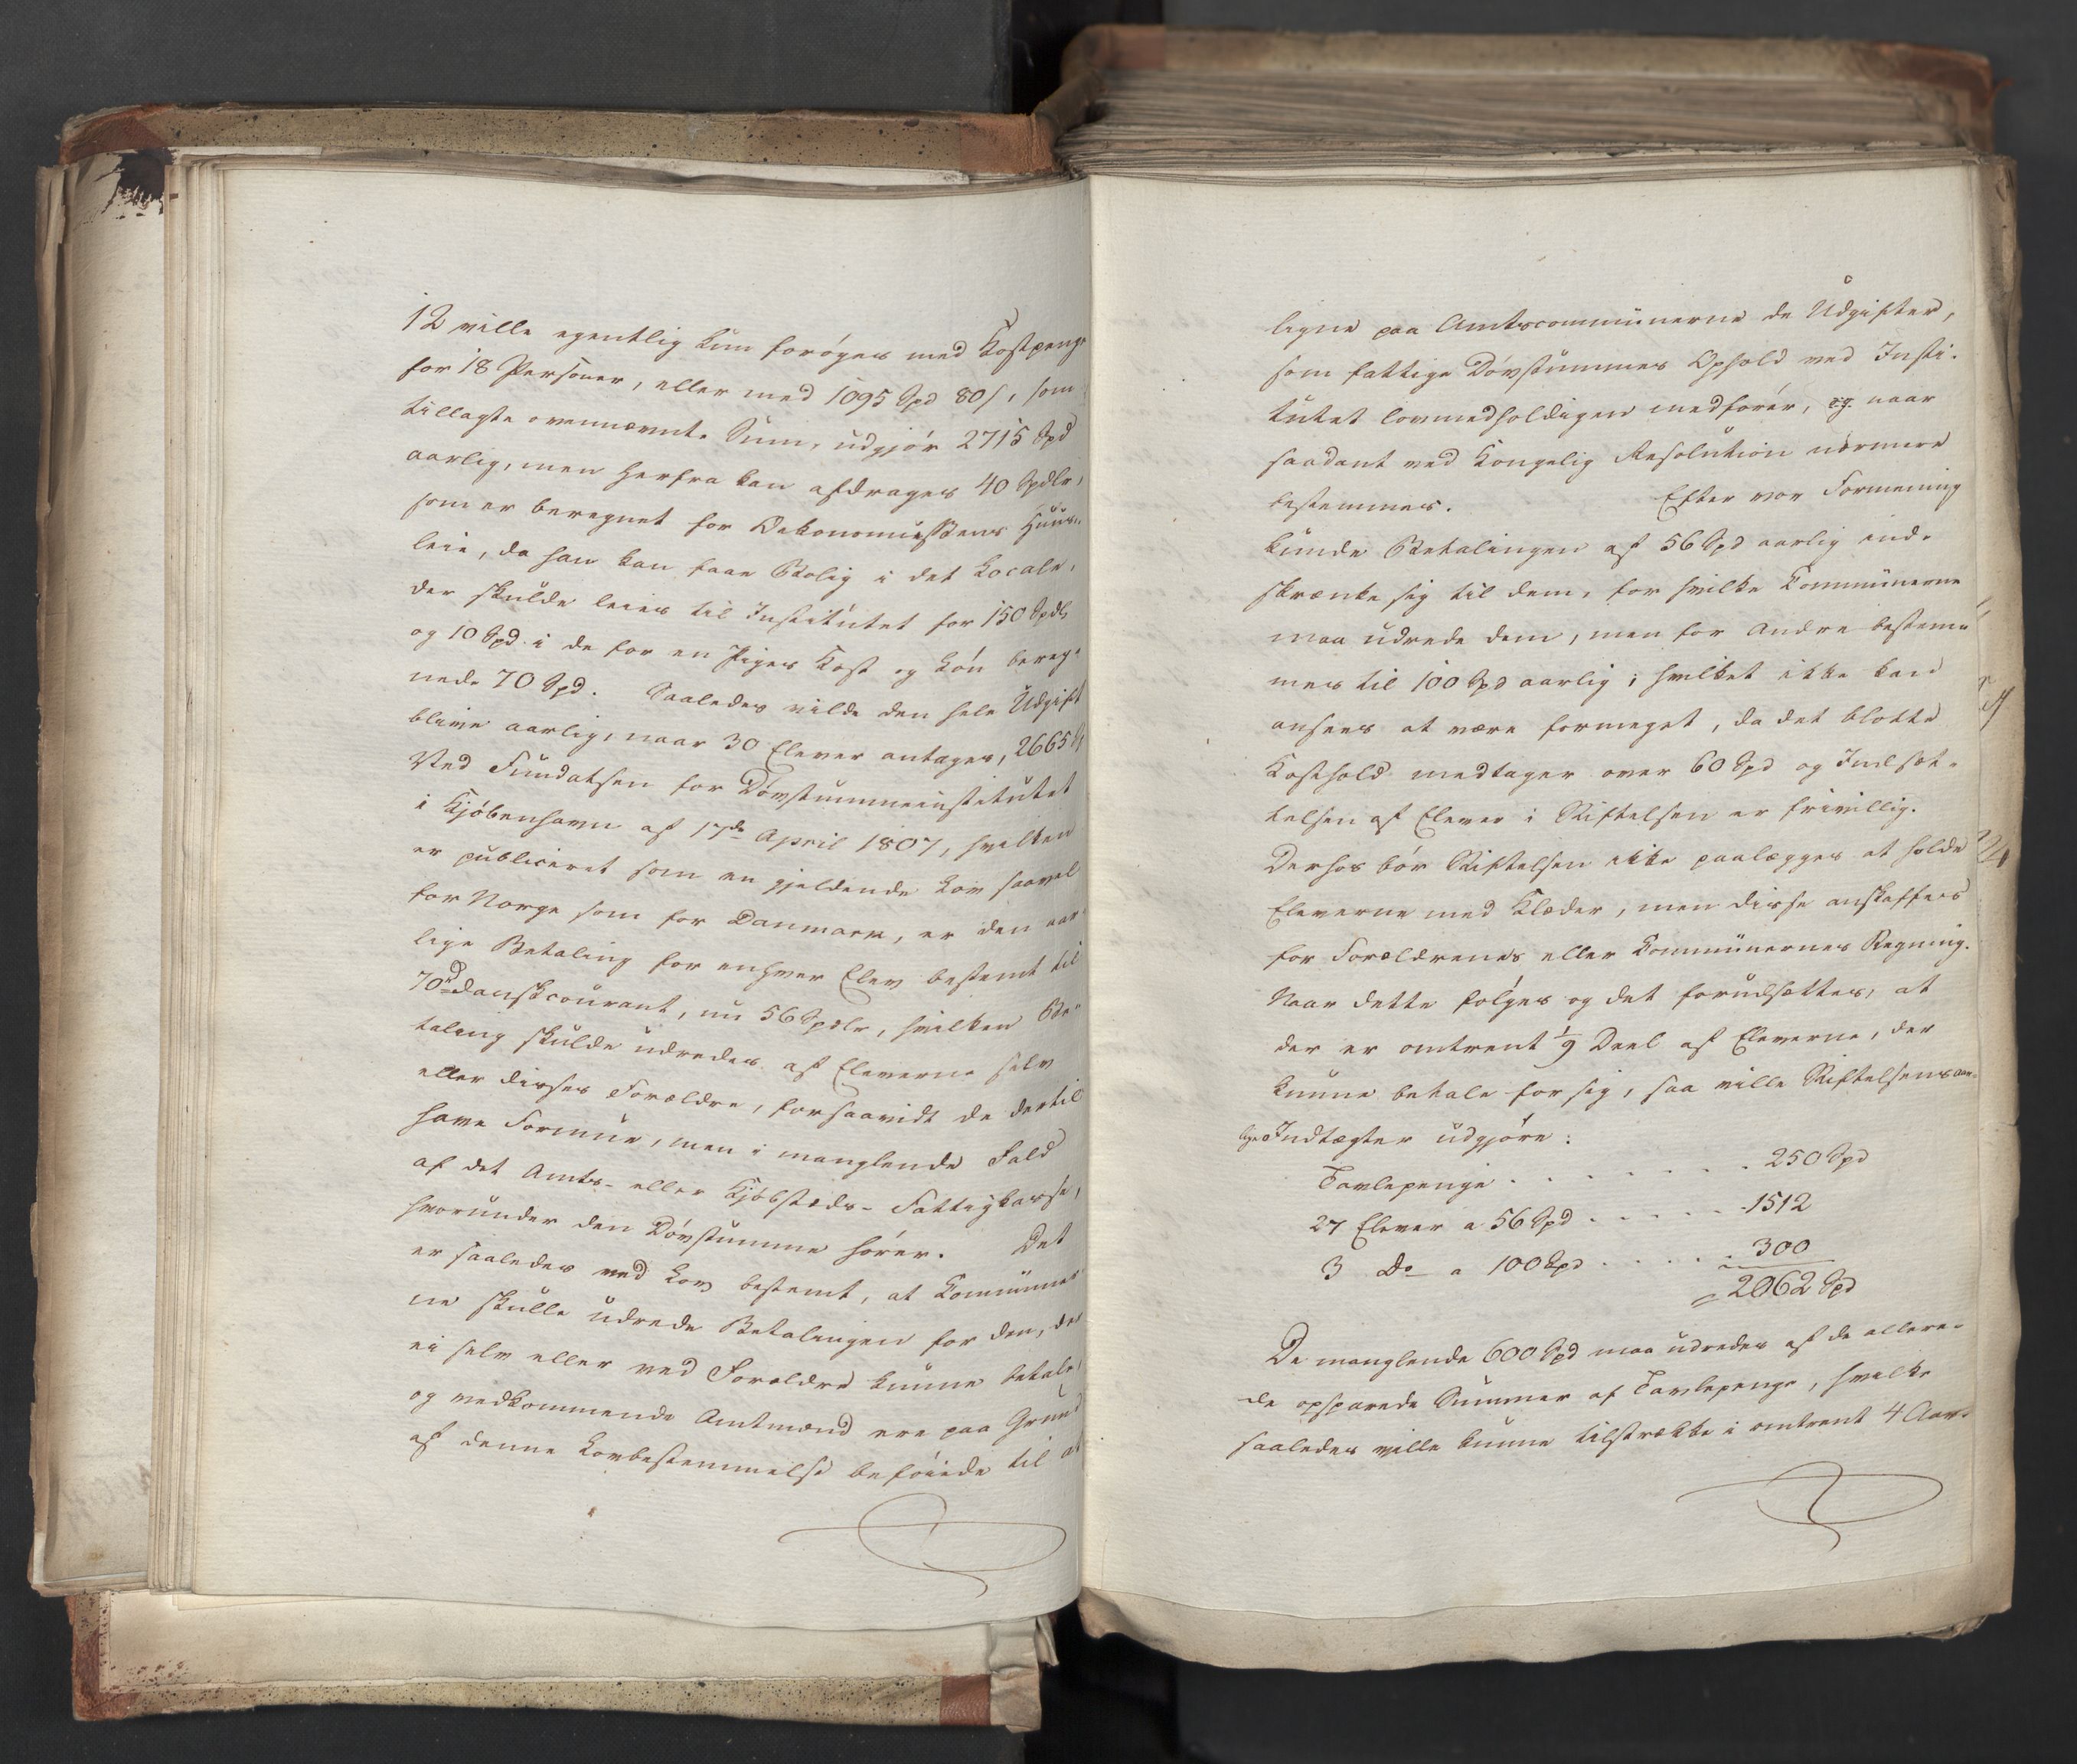 12 ville egentlig kun forøges med Kostpenge
for 18 Personer, eller med 1095 Spd 80 s, som
tillagte ovennævnte Sum, udgjør 2715 Spd
aarlig, men herfra kan afdrages 40 Spdlr,
som er beregnet for Oekonomussens Huus-
leie, da han kan faae Bolig i det Locale,
der skulde leies til Institutet for 150 Spdlr
og 10 Spd. i de for en Piges Kost og Løn bereg-
nede 70 Spd. Saaledes vilde den hele Udgift
blive aarlig, naar 30 Elever antages, 2665 Sp
Ved Fundatsen for Døvstummeinstitutet
i Kjøbenhavn af 17de April 1807, hvilken
er publiceret som en gjeldende Lov saavel
for Norge som for Danmark, er den aar-
lige Betaling for enhver Elev bestemt til
70 rd dansk courant, nu 56 Spdlr, hvilken Be-
taling skulde udredes af Eleverne selv
eller disses Forældre, forsaavidt de dertil
have Formue, men i manglende Fald
af det Amts- eller Kjøbstæds-Fattigkasse,
hvorunder den Døvstumme hører. Det
er saaledes ved Lov bestemt, at Communer-
ne skulle udrede Betalingen for den, der
ei selv eller ved Forældre kunne betale,
og vedkommende Amtmænd ere paa Grund
af denne Lovbestemmelse beføiede til at
ligne paa Amtscommunerne de Udgifter,
som fattige Døvstummes Ophold ved Insti-
tutet lovmedholdigen medfører, og naar
saadant ved Kongelig Resolution nærmere
bestemmes. Efter vor Formening
kunde Betalingen af 56 Spd aarlig ind-
skrænke sig til dem, for hvilke Communerne
maa udrede dem, men for Andre bestem-
mes til 100 Spd aarlig; hvilket ikke kan
ansees at være formeget, da det blotte
Kosthold medtager over 60 Spd og Indsæt-
telsen af Elever i Stiftelsen er frivillig.
Derhos bør Stiftelsen ikke paalægges at holde
Eleverne med Klæder, men disse anskaffes
for Forældrenes eller Communernes Regning.
Naar dette følges og det forudsættes, at
der er omtrent 1/9 Deel af Eleverne, der
kunne betale for sig, saa ville Stiftelsens aar-
lige Indtægter udgjøre:
Tavlepenge . . . . . . . 250 Spd
27 Elever a 56 Spd . . . . . . 1512
3 Do a 100 Spd . . . . . 300
= 2062 Spd
De manglende 600 Spd maa udredes af de allere-
de opsparede Summer af Tavlepenge, hvilke
saaledes ville kunne tilstrække i omtrent 4 Aar.